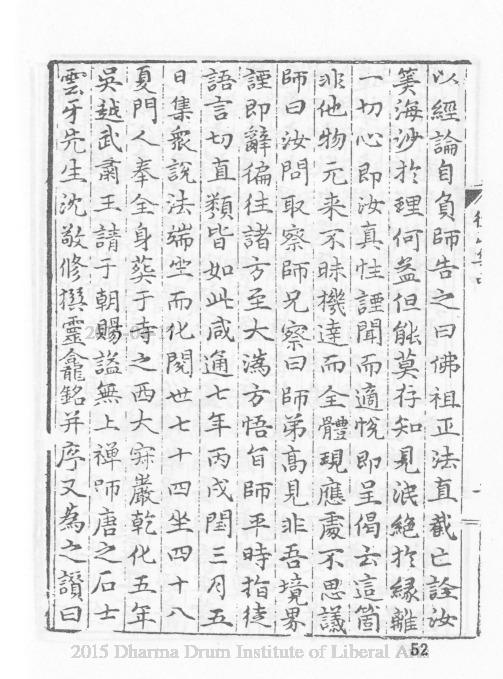 以經論自負師告之曰佛祖正法直截亡詮汝
筭海沙於理何益但能莫存知見泯絕於緣離
一切心即汝真性諲聞而適悅即呈偈云這箇
非他物元来不昧機達而全體現應處不思議
師曰汝問取察師兄察曰師弟高見非吾境界
諲即辭徧往諸方至大溈方悟旨師平時指徒
語言切直類皆如此咸通七年丙戌閏三月五
日集衆說法端坐而化閱世七十四坐四十八
夏門人奉全身葬于寺之西大寂巖乾化五年
吳越武肅王請于朝賜謚無上禪師唐之石士
雲牙先生沈敬修撰靈龕銘并序又為之讚曰
52
2015 Dharma Drum Institute of Liberal Arts